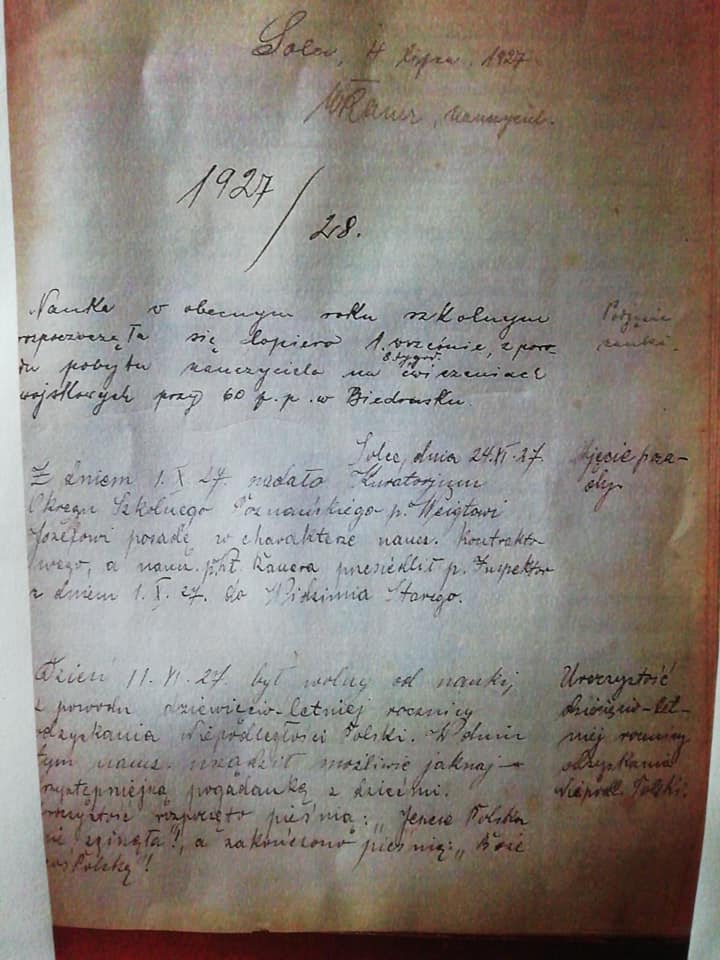 Solec, 4 lipca 1927
WKauer, nauczyciel.
1927/28.
Nauka w obecnym roku szkolnym
rozpoczęła się dopiero 1. września, z powo-
du pobytu nauczyciela na 8 tygod. ćwiczeniach
wojskowych przy 60 p. p. w Biedrusku.
Podjęcie
nauki.
Solec, dnia 24.XI.27.
Z dniem 1. X 27. nadało Kuratorjum
Okręgu Szkolnego Poznańskiego p. Weigtowi
Józefowi posadę w charakterze naucz. kontrakto-
wego, a naucz. p. Kauera przesiedlił p. Inspektor
z dniem 1. X. 27. do Widzimia Starego.
Objęcie posa-
dy
Dzień 11. XI. 27. był wolny od nauki,
z powodu dziewięcio-letniej rocznicy
odzyskania Niepodległości Polski. W dniu
tym naucz. urządził możliwie jaknaj-
przystępniejszą pogadankę z dziećmi.
Uroczystość rozpoczęto pieśnią: "Jeszcze Polska
nie zginęła"!, a zakończono pieśnią: "Boże
coś Polskę"!
Uroczystość
dziewięcio-let-
niej rocznicy
odzyskania
Niepodl. Polski.